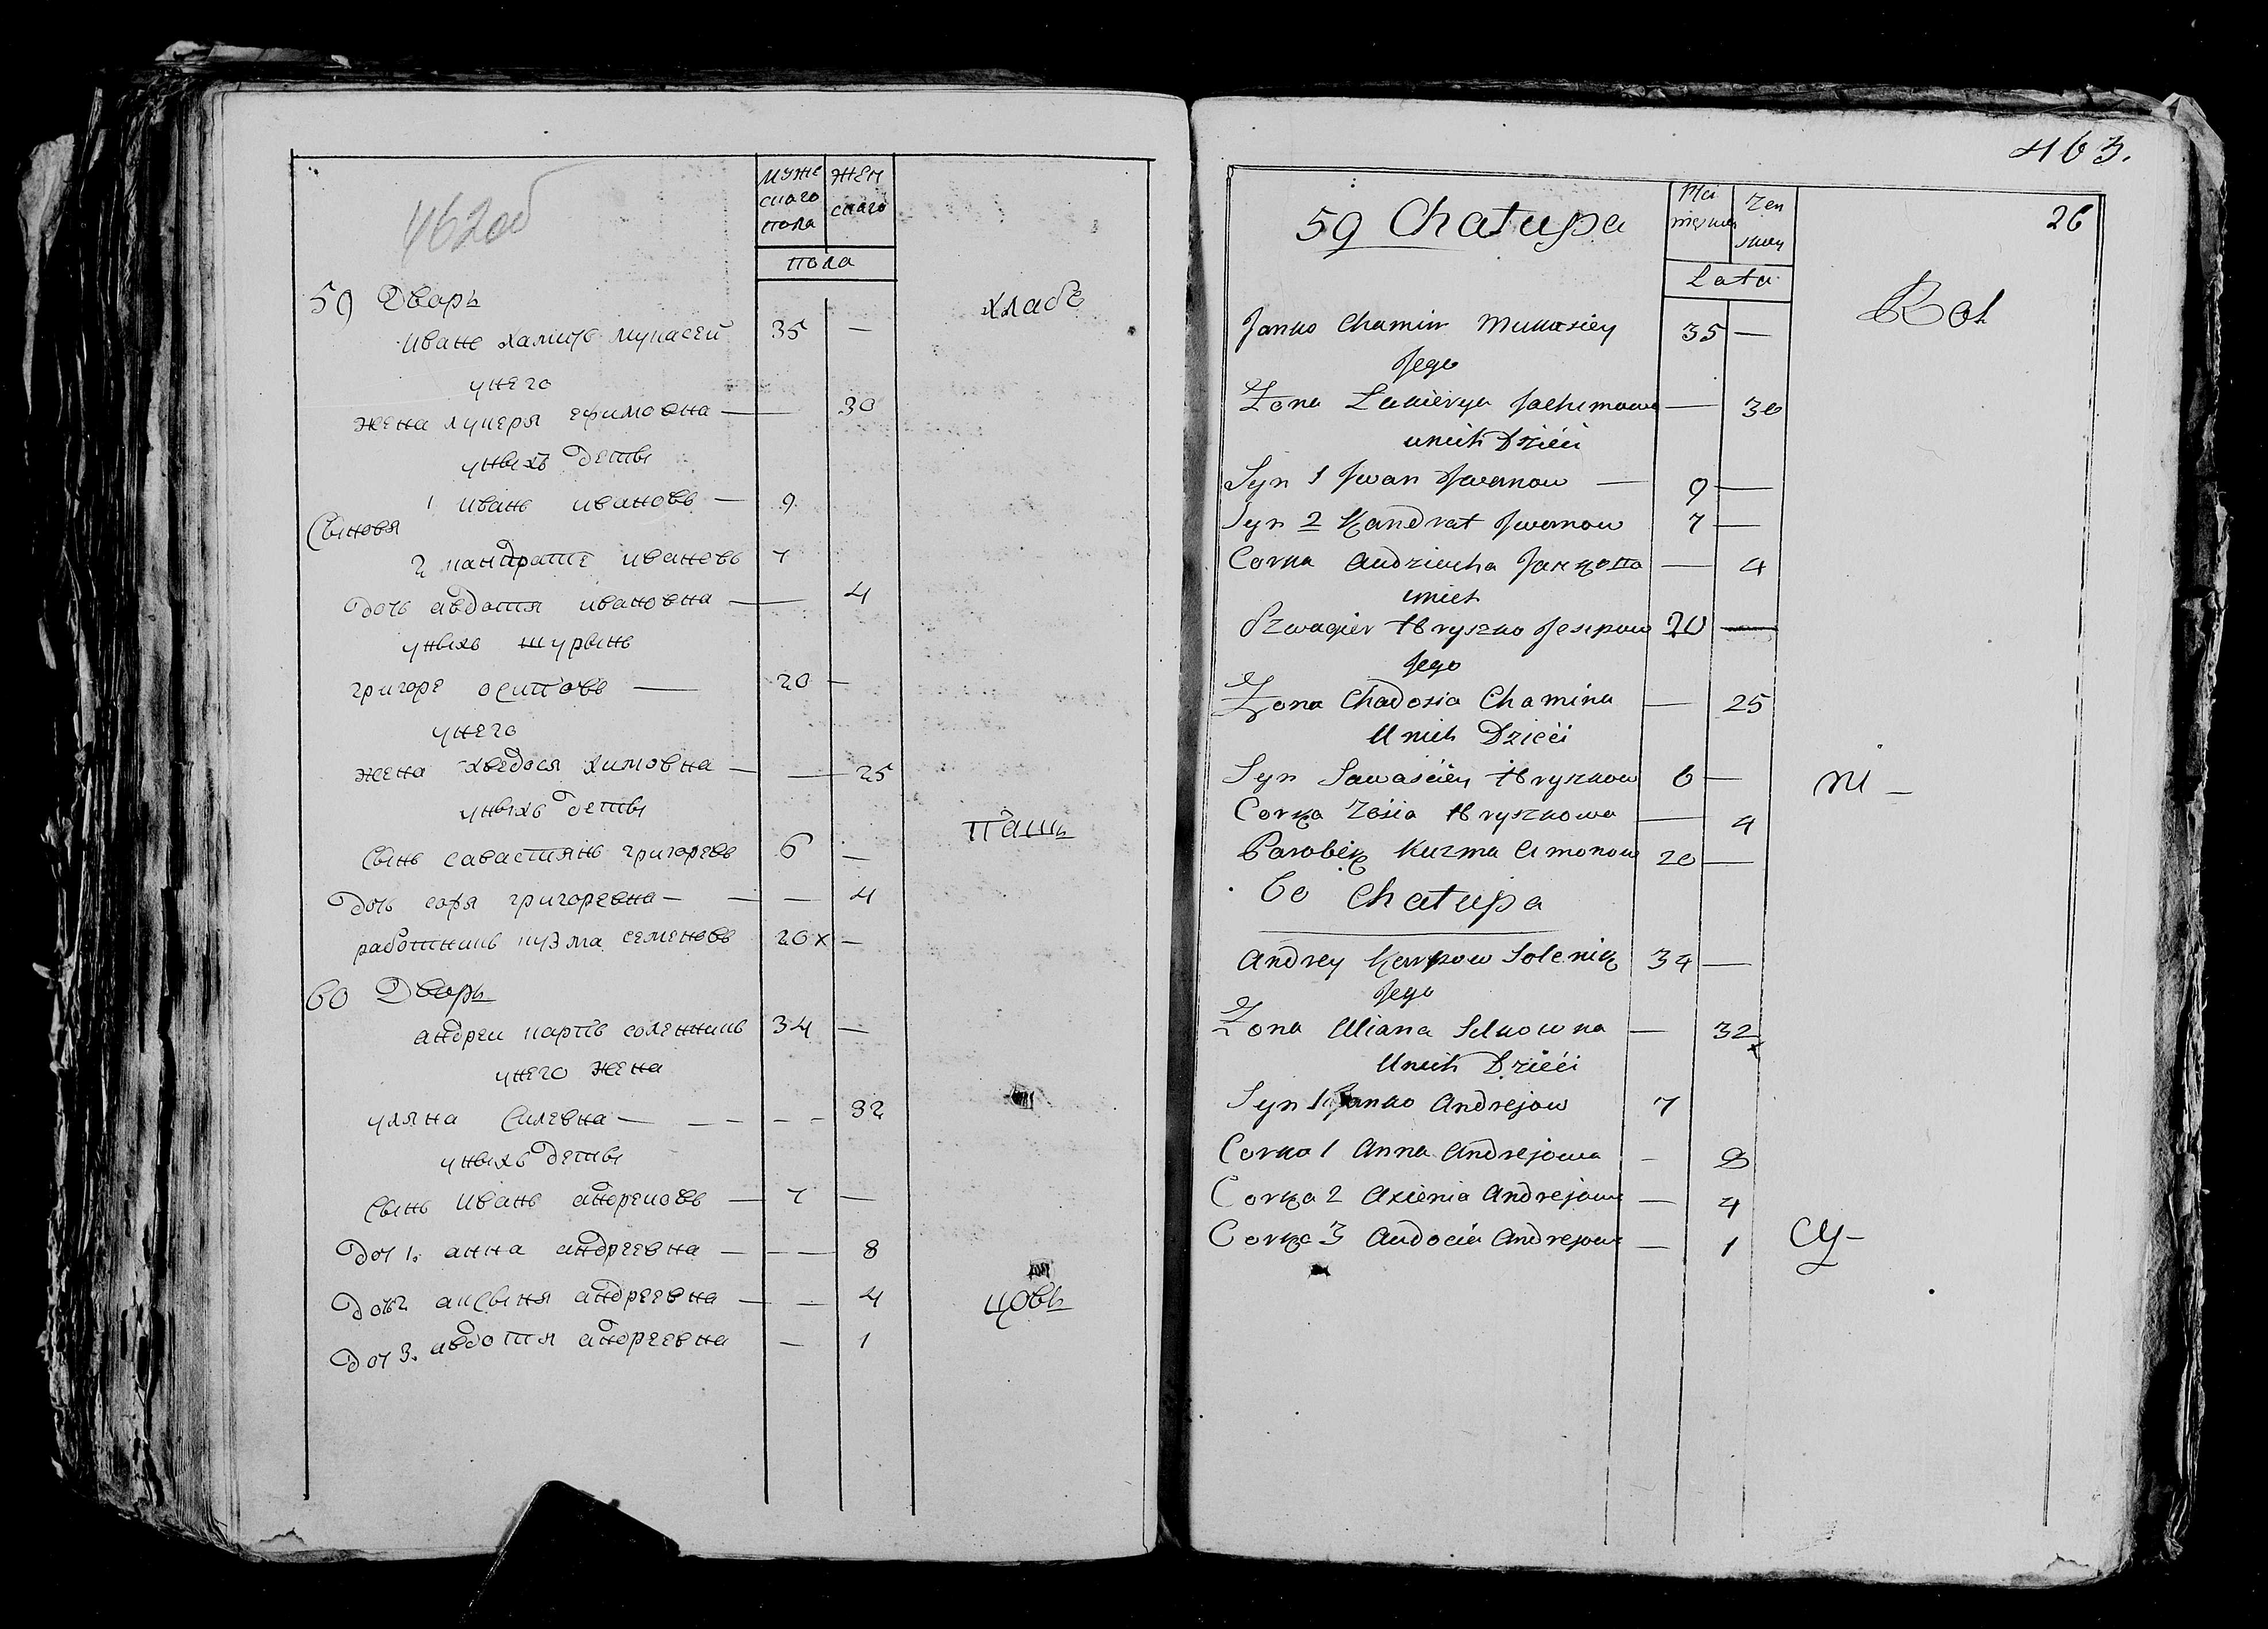 462об
муже
скаго
пола
жен
скаго
пола
59 Дворъ
хлебо
иване хамичъ мукасей 35 —
унего
жена лукеря ефимовна — 30
унвıхъ детвı
1 иванъ ивановъ — 9
Свıновя
2 кандрате ивановъ 7
дочь авдотя ивановна — 4
унвıхъ шурвıнъ
григоре осиповъ — 20 —
унего
жена хведося химовна — — 25
унвıхъ детвı
пашъ
свıнъ савастиянъ григоревъ 6 —
дочь софя григоревна — — — 4
работникъ кузма семеновъ 20 x —
60 Дворъ
андреи карпъ соленникъ 34 —
унего жена
уляна силевна — — — - - 32
унвıхъ детвı
свıнъ иванъ андреиовъ — 7 —
доч 1. анна андреевна — - — 8
доч 2 аксвıня андреевна — — 4
цовъ
доч 3. авдотя андреевна — 1
463.
26
59 Chałupa
Płci
męskiey
Żen
skiey
Lata
Rol
Janko Chamin Mukasiey 35 —
Jego
Żona Łukierya Jachimowa — 30
unich Dzieci
Syn 1 Jwan Jwanow — 9 —
Syn 2 Kandrat Jwanow 7 —
Corka Audziucha Jankowa — 4
unich
Szwagier Hryszko Jesipow 20 —
Jego
Żona Chadosia Chamina — 25
Unich Dzieci
Syn Sawaściey Hryszkow 6 —
ni —
Corka Zosia Hryszkowa — 4
Parobek Kuzma Simonow 20 —
60 Chałupa
Andrey Karpow Solenik 34 —
Jego
Żona Uliana Silkowna — 32 x
Unich Dzieci
Syn 1 Janko Andrejow 7
Corka 1 Anna Andrejowa - 8
Corka 2 Axienia Andrejowa — 4
Corka 3 Audocia Andrejowa — 1
cy-